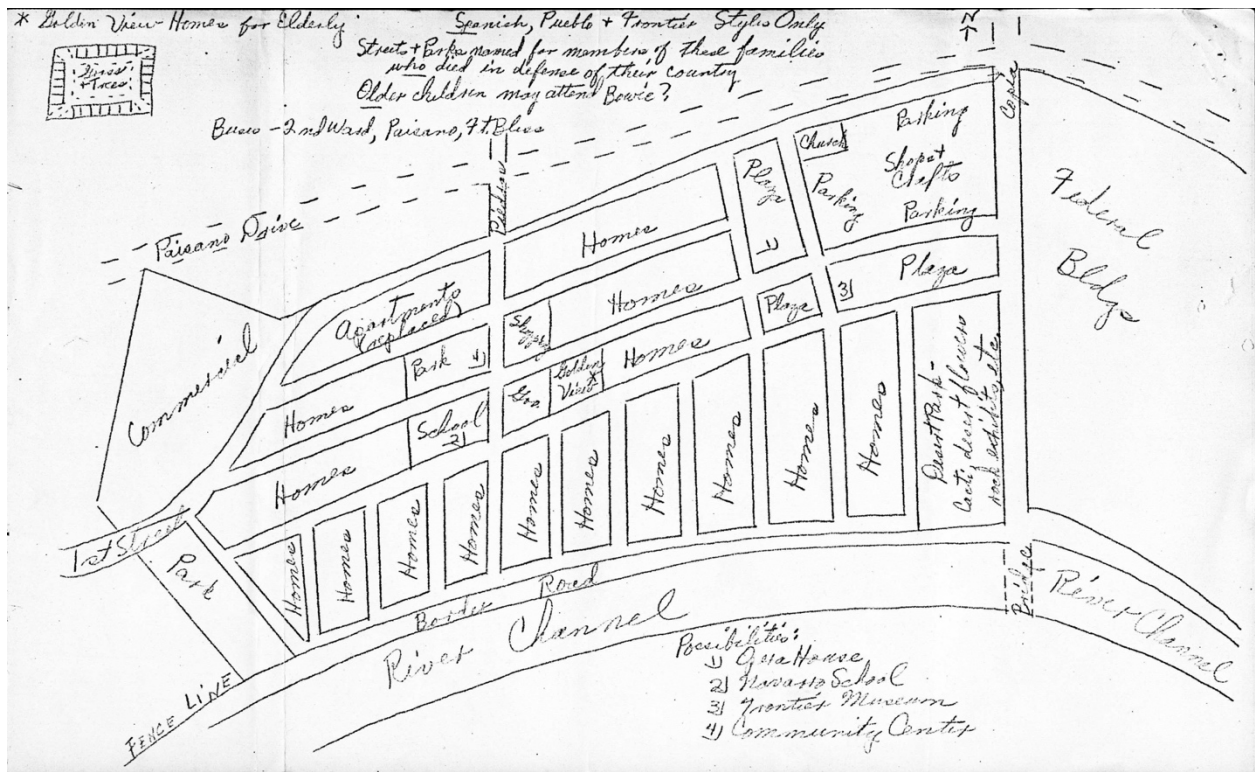 * Golden View Homes for Elderly
Grass
+ Trees
Spanish, Pueblo + Frontier Styles Only
Streets + Parks named for members of these families
who died in defense of their country
Older children may attend Bowie?
Buses - 2nd Ward, Paisano, Ft. Bliss
N
Copia
Piedras
Paisano Drive
Church
Parking
Shops +
Crafts
Parking
Parking
Federal
Bldgs
Plaza
1)
Homes
Plaza
3)
Apartments
(replaced)
Shops
Homes
Plaza
Commercial
Park 4)
Golden
View *
Homes
Homes
School
2)
Homes
Homes
Homes
Homes
Homes
Homes
Homes
Homes
Homes
Homes
Homes
Desert Park -
Cacti, desert flowers
rock exhibits, etc.
1st Street
Park
Border Road
River Channel
Bridge
River Channel
FENCE LINE
Possibilities:
1) House
2) Navarro School
3) Frontier Museum
4) Community Center